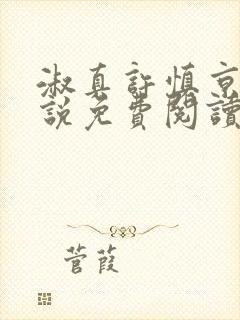 淑真許慎京
說免費閱讀
菅葭